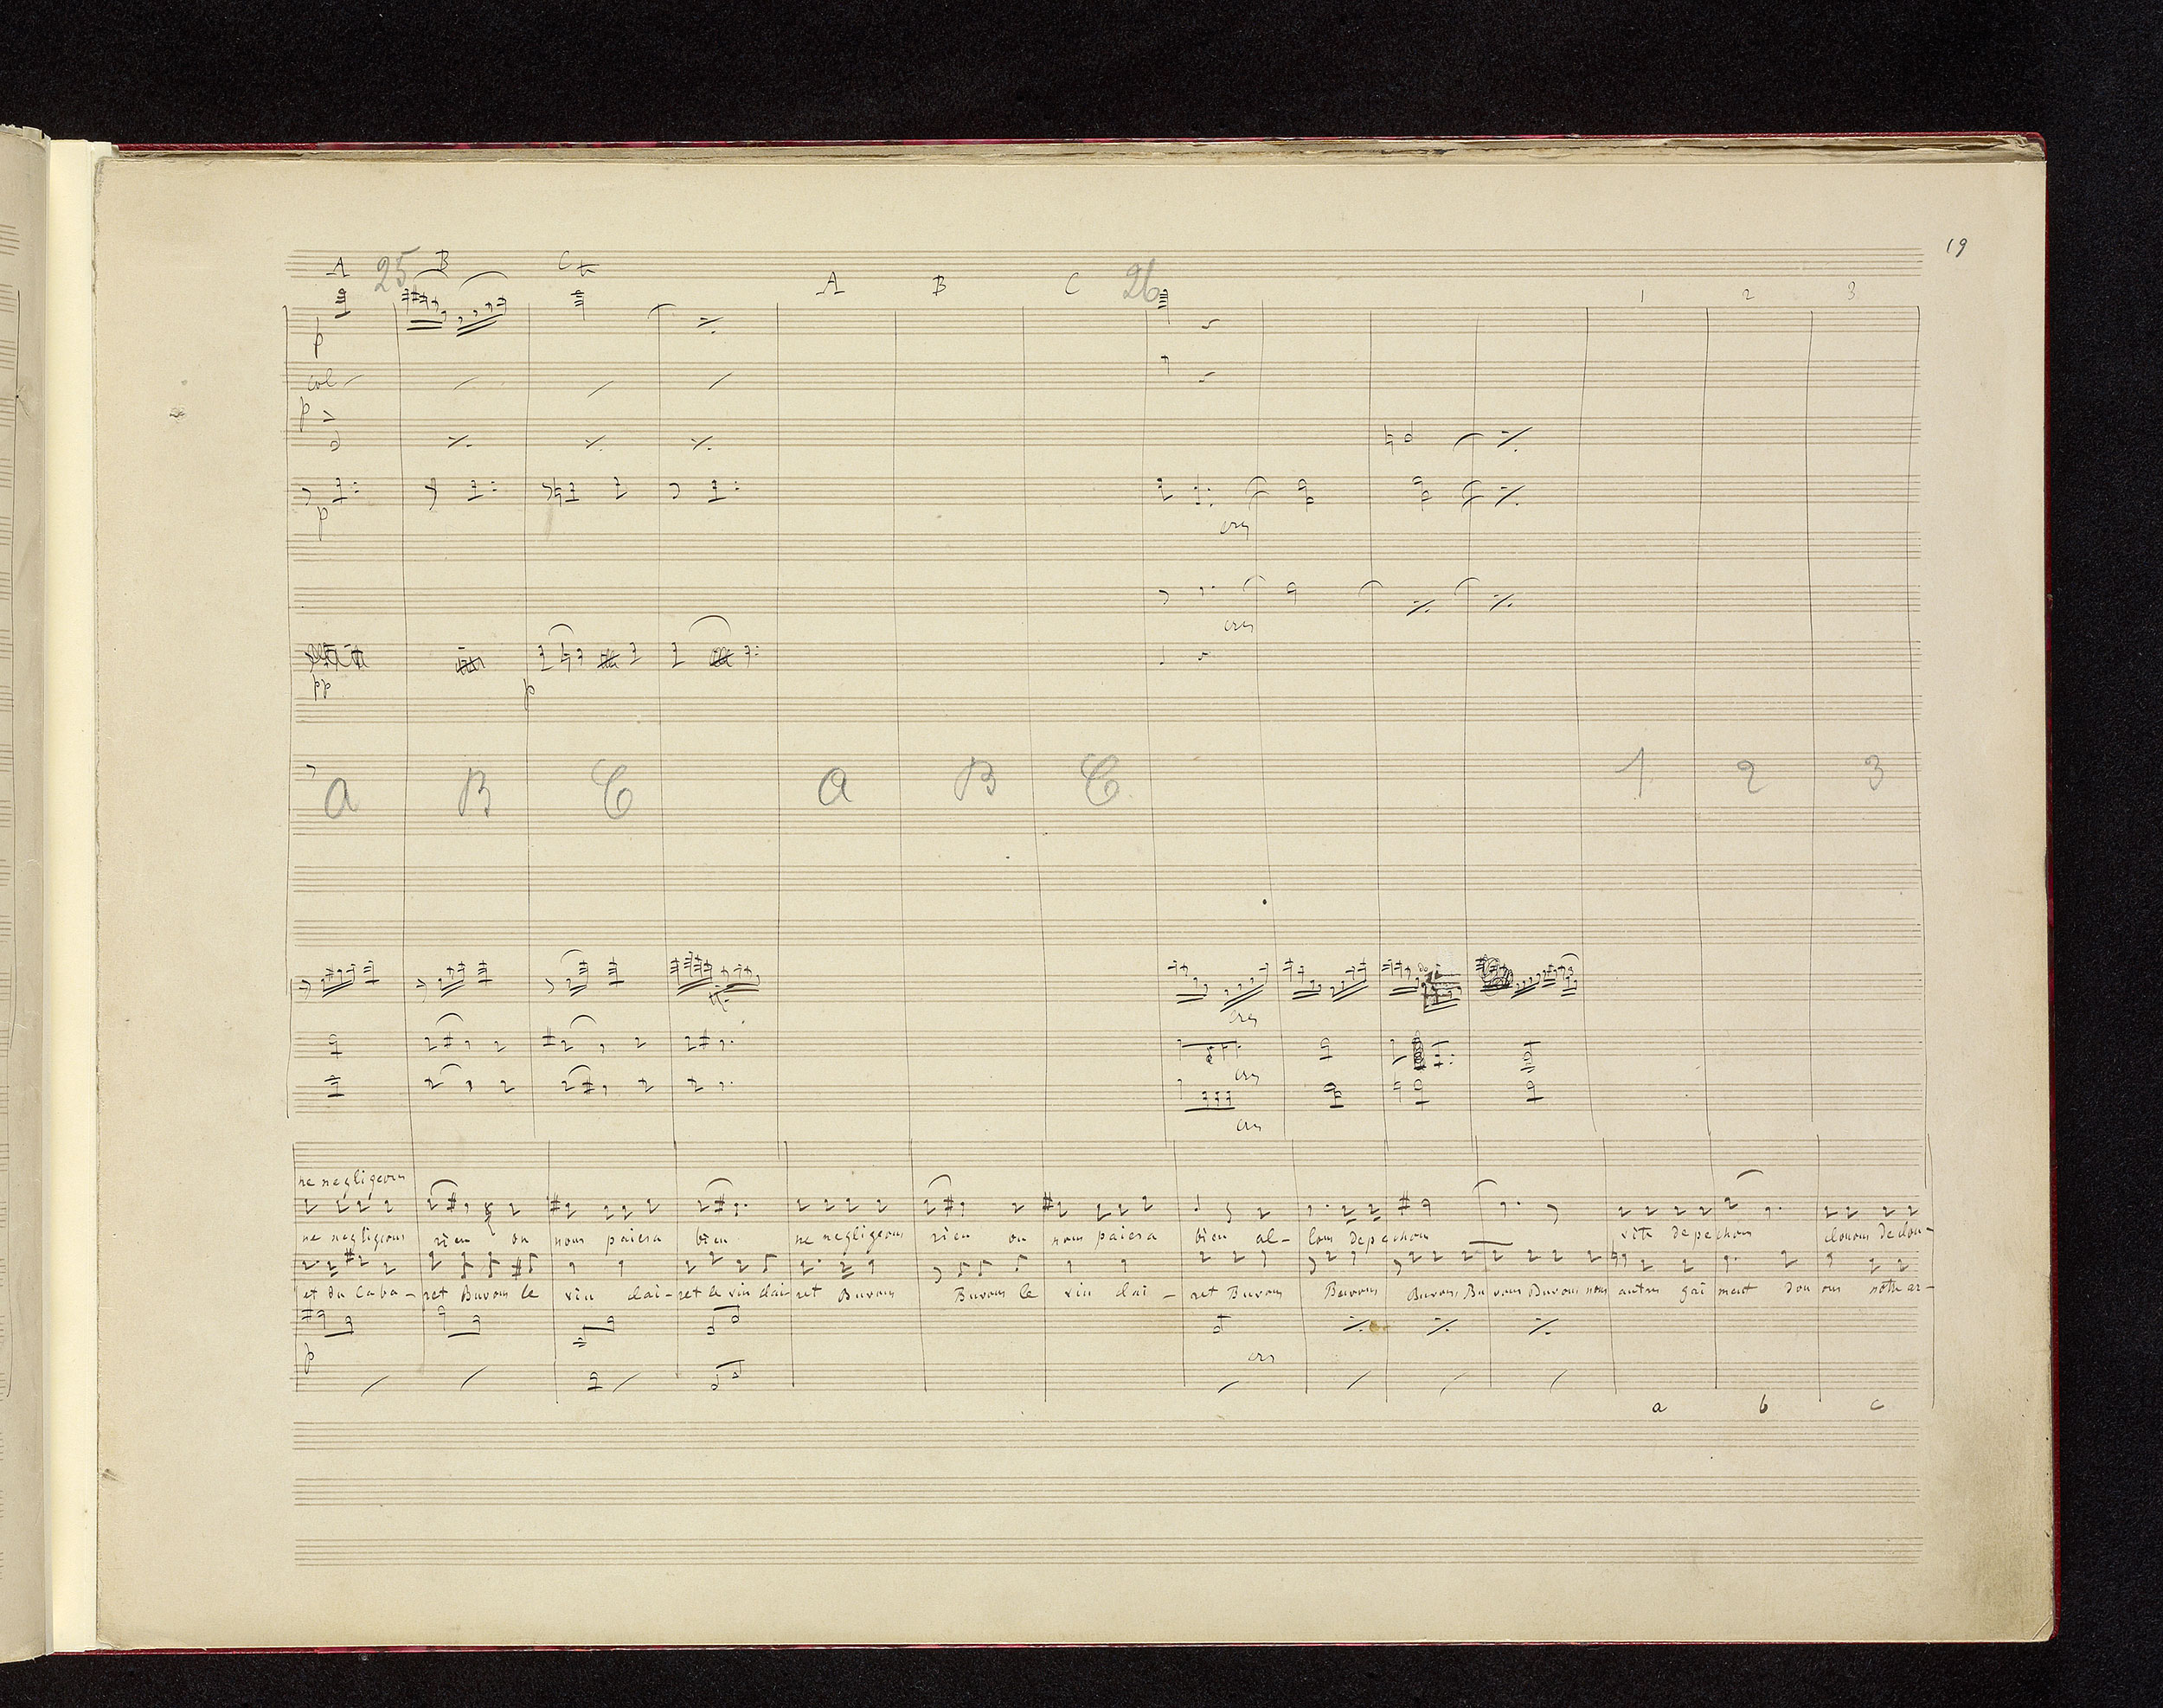 19
A 25 B C A B C 26 1 2 3
p
col
p
p
cres
cres
pp p
A B C A B C 1 2 3
cres
cres
cres
ne negligeons
ne negligeons rien on nous paiera bien ne negligeons rien on nous paiera bien al- lons depechons vite depechons donons de don-
et du Caba- ret Buvons le vin clai- ret le vin clai- ret Buvons Buvons le vin clai - ret Buvons Buvons Buvons Bu vons Buvons nous autres gai ment don ons notre ar-
p
cres
a b c